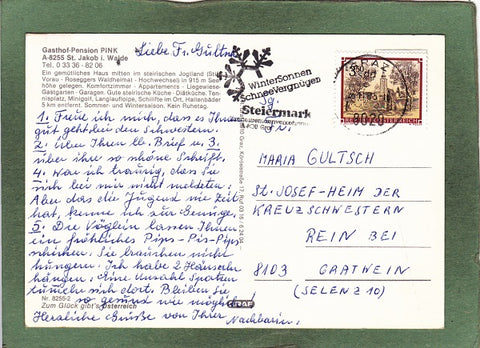 Gasthof-Pension PINK
A-8255 St. Jakob i. Walde
Tel. 0 33 36 - 82 06
Ein gemütliches Haus mitten im steirischen Joglland
Vorau - Roseggers Waldheimat - Hochwechsel) in 915 m See-
höhe gelegen. Komfortzimmer - Appartements - Liegewiese-
Gastgarten - Garagen. Gute steirische Küche - Diätküche. Ten-
nisplatz, Minigolf, Langlaufloipe, Schilifte im Ort, Hallenbäder
5 km entfernt. Sommer- und Wintersaison. Kein Ruhetag.
Liebe Fr. Gultsch
1. Freut ich mich, daß es Ihnen
gut geht bei den Schwestern.
2. Über Ihren lb. Brief u. 3.
über ihre so schöne Schrift.
4. War ich traurig, daß Sie
sich bei mir nicht meldeten.
Aber daß die Jugend nie Zeit
hat, kenne ich zur Genüge.
5. Die Vöglein lassen Ihnen
ein fröhliches Pips-Pis-Pips
schicken. Sie brauchen nicht
hungern. Ich habe 2 Häuschen
hängen. Eine Unzahl Spatzen
tummeln sich dort. Bleiben Sie
so gesund wie möglich
Herzliche Grüße von Ihrer
Nachbarin.
Nr. 8255-2
Zum Glück gibt's Österreich
GRAF
WinterSonnen
SchneeVergnügen
Steiermark
GRAZ
8020
REPUBLIK ÖSTERREICH
MARIA GULTSCH
ST. JOSEF-HEIM DER
KREUZSCHWESTERN
REIN BEI
8103 GRATWEIN
(SELENZ 10)